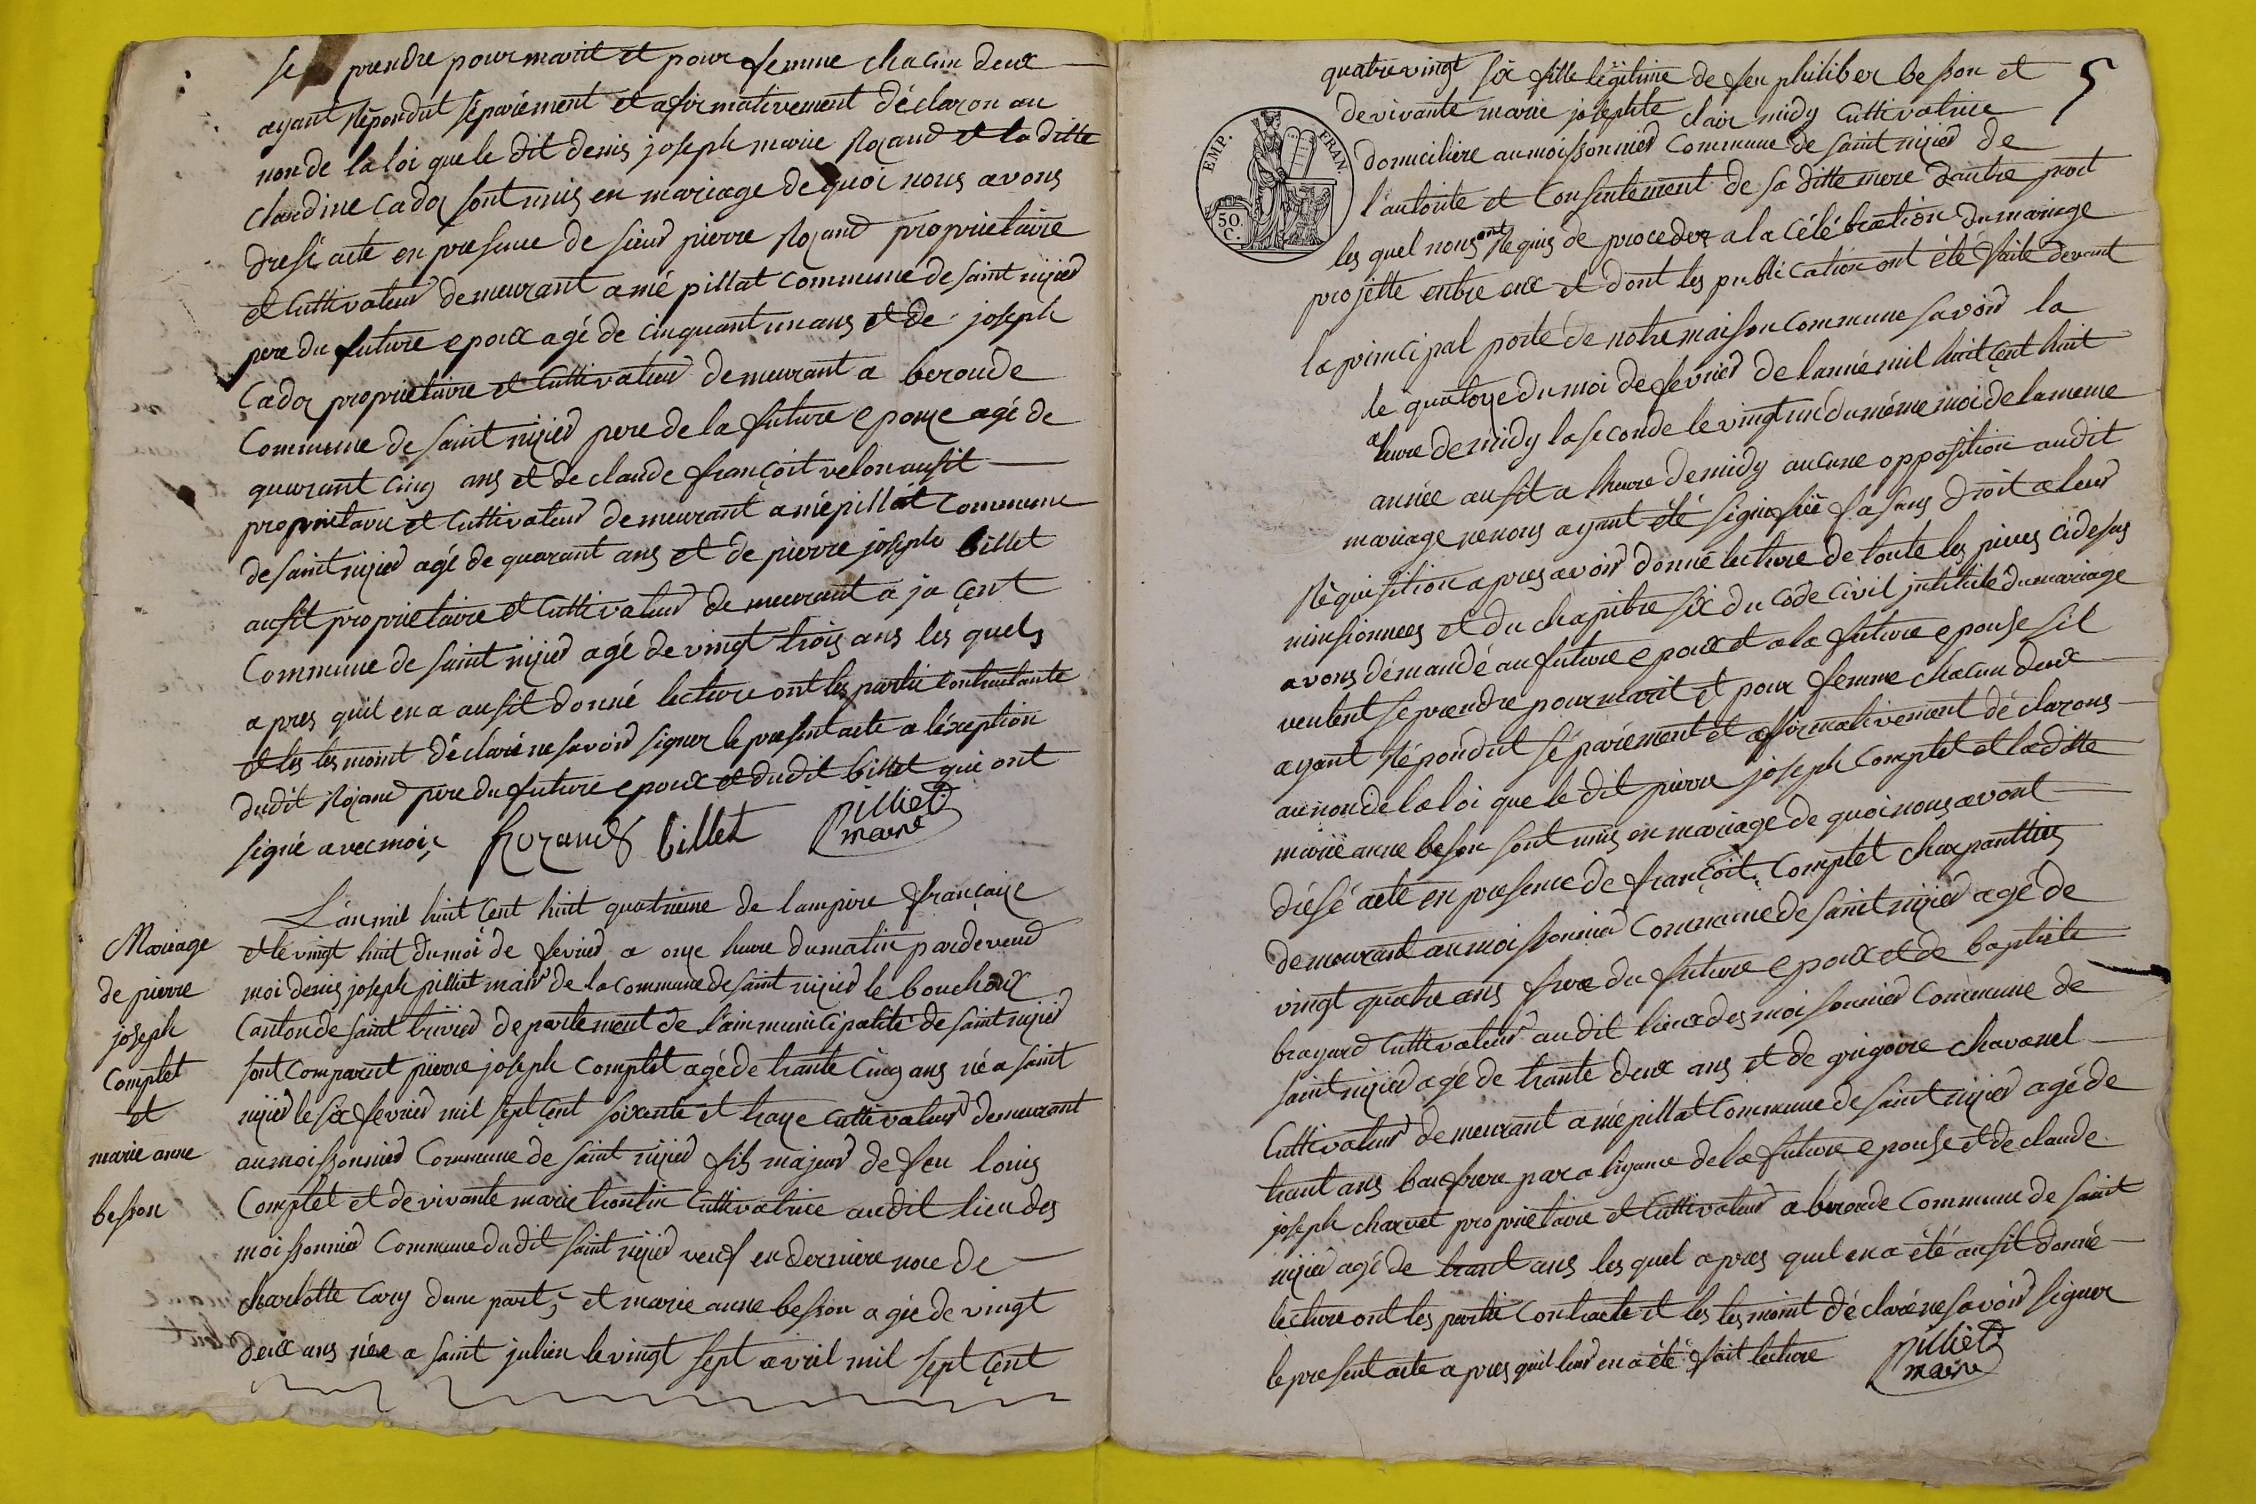 se prendre pour marit et pour femme chacun deux
ayant répondut séparément et afirmativement déclaron au
non de la loi que le dit denis joseph marie Rozand et la ditte
claudine cadoz sont unis en mariage de quoi nous avons
dressé acte en presence de sieur pierre Rozand proprietaire
et Cuttivateur demeurant a mépillat commune de saint nizied
pere du future epoux agé de cinquant un ans et de joseph
Cadoz proprietaire et Cuttivateur demeurant a beroude
Commune de saint nizied pere de la future epouze agé de
quarant cinq ans et de claude françoit velon ausit
proprietaire et Cuttivateur demeurant a mépillat commune
de saint nizied agé de quarant ans et de pierre joseph billet
ausit proprietaire et Cuttivateur demeurant a ja çent
Commune de saint nizied agé de vingt trois ans les quels
a pres quil en a ausit donné lecture ont les partie contractante
et les tesmoint déclaré ne savoir signer le present acte a léxeption
dudit Rozand pere du future epoux et dudit billet qui ont
signé avec moiz Rozand billet pilliet
maire
L'an mil huit çent huit quatrieme de lampire française
Mariage
de pierre
joseph
Complet
et
marie anne
besson
et le vingt huit du moi de fevried a onze huere du matin pardevend
moi denis joseph pilliet maire de la commune de saint nizied le bouchoux
Canton de saint trivied departement de l'ain municipalité de saint nizied
sont comparut pierre joseph Complet agé de trante cinq ans né a saint
nizied le six fevried mil sept çent soixante et traze cuttivateur demeurant
au moissonnied Commune de saint nizied fils majeur de feu louis
Complet et de vivante marie trontin Cuttivatrice audit lieu des
moissonnied Commune dudit saint nizied veuf en derniere noce de
charlotte Cary dune part, et marie anne besson agée de vingt
deux ans née a saint julien le vingt sept avril mil sept çent
5
quatre vingt six fille légitime de feu philiber besson et
de vivante marie josephte clair midy Cuttivatrice
domiciliere au moissonnied Commune de saint nizied de
l'autorite et Consentement de sa ditte mere dautre part
les quel nous ont Requis de proceder a la célébration du mariage
projette entre eux et dont les publication ont été faite devant
la principal porte de notre maison commune savoir la
le quatorze du moi de fevried de lannée mil huit cent huit
a huere de midy la seconde le vingt un du méme moi de la meme
année ausit a lhuere de midy aucune opposition audit
mariage ne nous ayant été signifiée fasans droit a leur
Réquisition apres avoir donné lecture de toute les pieces cidesus
minsionnees et du chapitre six du code civil intitulé du mariage
avons démandé au future epoux et a la future epouse sil
veulent se prendre pour marit et pour femme chacun deux
ayant répondut séparément et afirmativement déclarons
au non de la loi que le dit pierre joseph Complet et la ditte
marie anne besson sont unis en mariage de quoi nous avont
drésé acte en presence de françoit Complet charpanttied
demeurant au moissonnied Commune de saint nizied agé de
vingt quatre ans frere du future epoux et de baptiste
brayard Cuttivateur audit lieux des moissonnied Commune de
saint nizied agé de trante deux ans et de grigoire chavanel
Cuttivateur demeurant a mépillat Commune de saint nizied agé de
trant ans baufrere par aliyance de la future epouse et de claude
joseph charvet proprietaire et Cuttivateur a beroude Commune de saint
nizied agé de trant ans les quel apres quil en a été ausit donné
lecture ont les partie contracte et les tesmoint déclaré ne savoir signer
le present acte apres quil leur en a été fait lecture pilliet
maire
EMP. FRAN.
50
C.